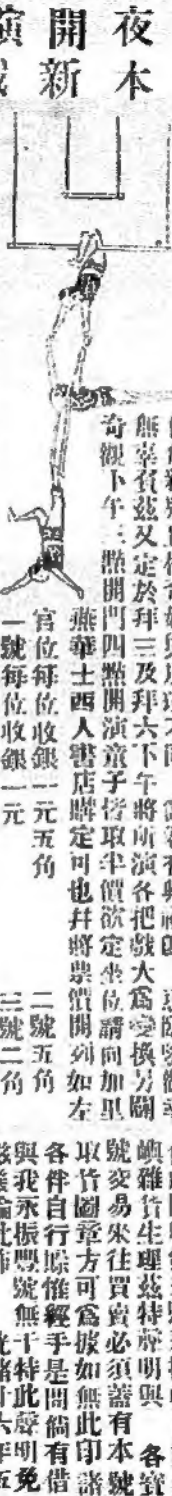 夜本
開新
演戲
無辜賓茲又定於拜三及拜六下午將所演各把戲大爲變換另闢
奇觀下午三點開門四點開演童子皆取半價欲定坐位請向加里
燕華士西人書店購定可也幷將票價開列如左
官位每位收銀一元五角
一號每位收銀一元
二號五角
三號二角
各寶
嶼雜貨生理茲特辭明與
號交易來往買賣必須蓋有本號
取貨圖章方可爲據如無此印諸
各件自行賒惟經手是問倘有借
與我永振豐號無干特此聲明免
光緒廿六年五